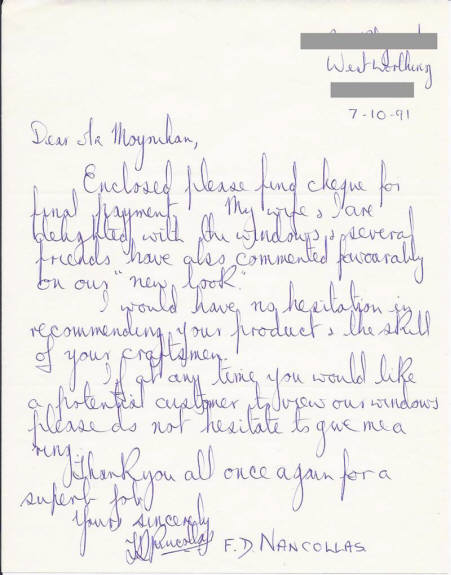 West Worthing
7-10-91
Dear Mr Moynihan,
Enclosed please find cheque for
final payment. My wife & I are
delighted with the windows & several
friends have also commented favourably
on our "new look".
I would have no hesitation in
recommending your product & the skill
of your craftsmen.
If at any time you would like
a potential customer to view our windows
please do not hesitate to give me a
ring.
Thank you all once again for a
superb job
Yours sincerely
F. D. NANCOLLAS